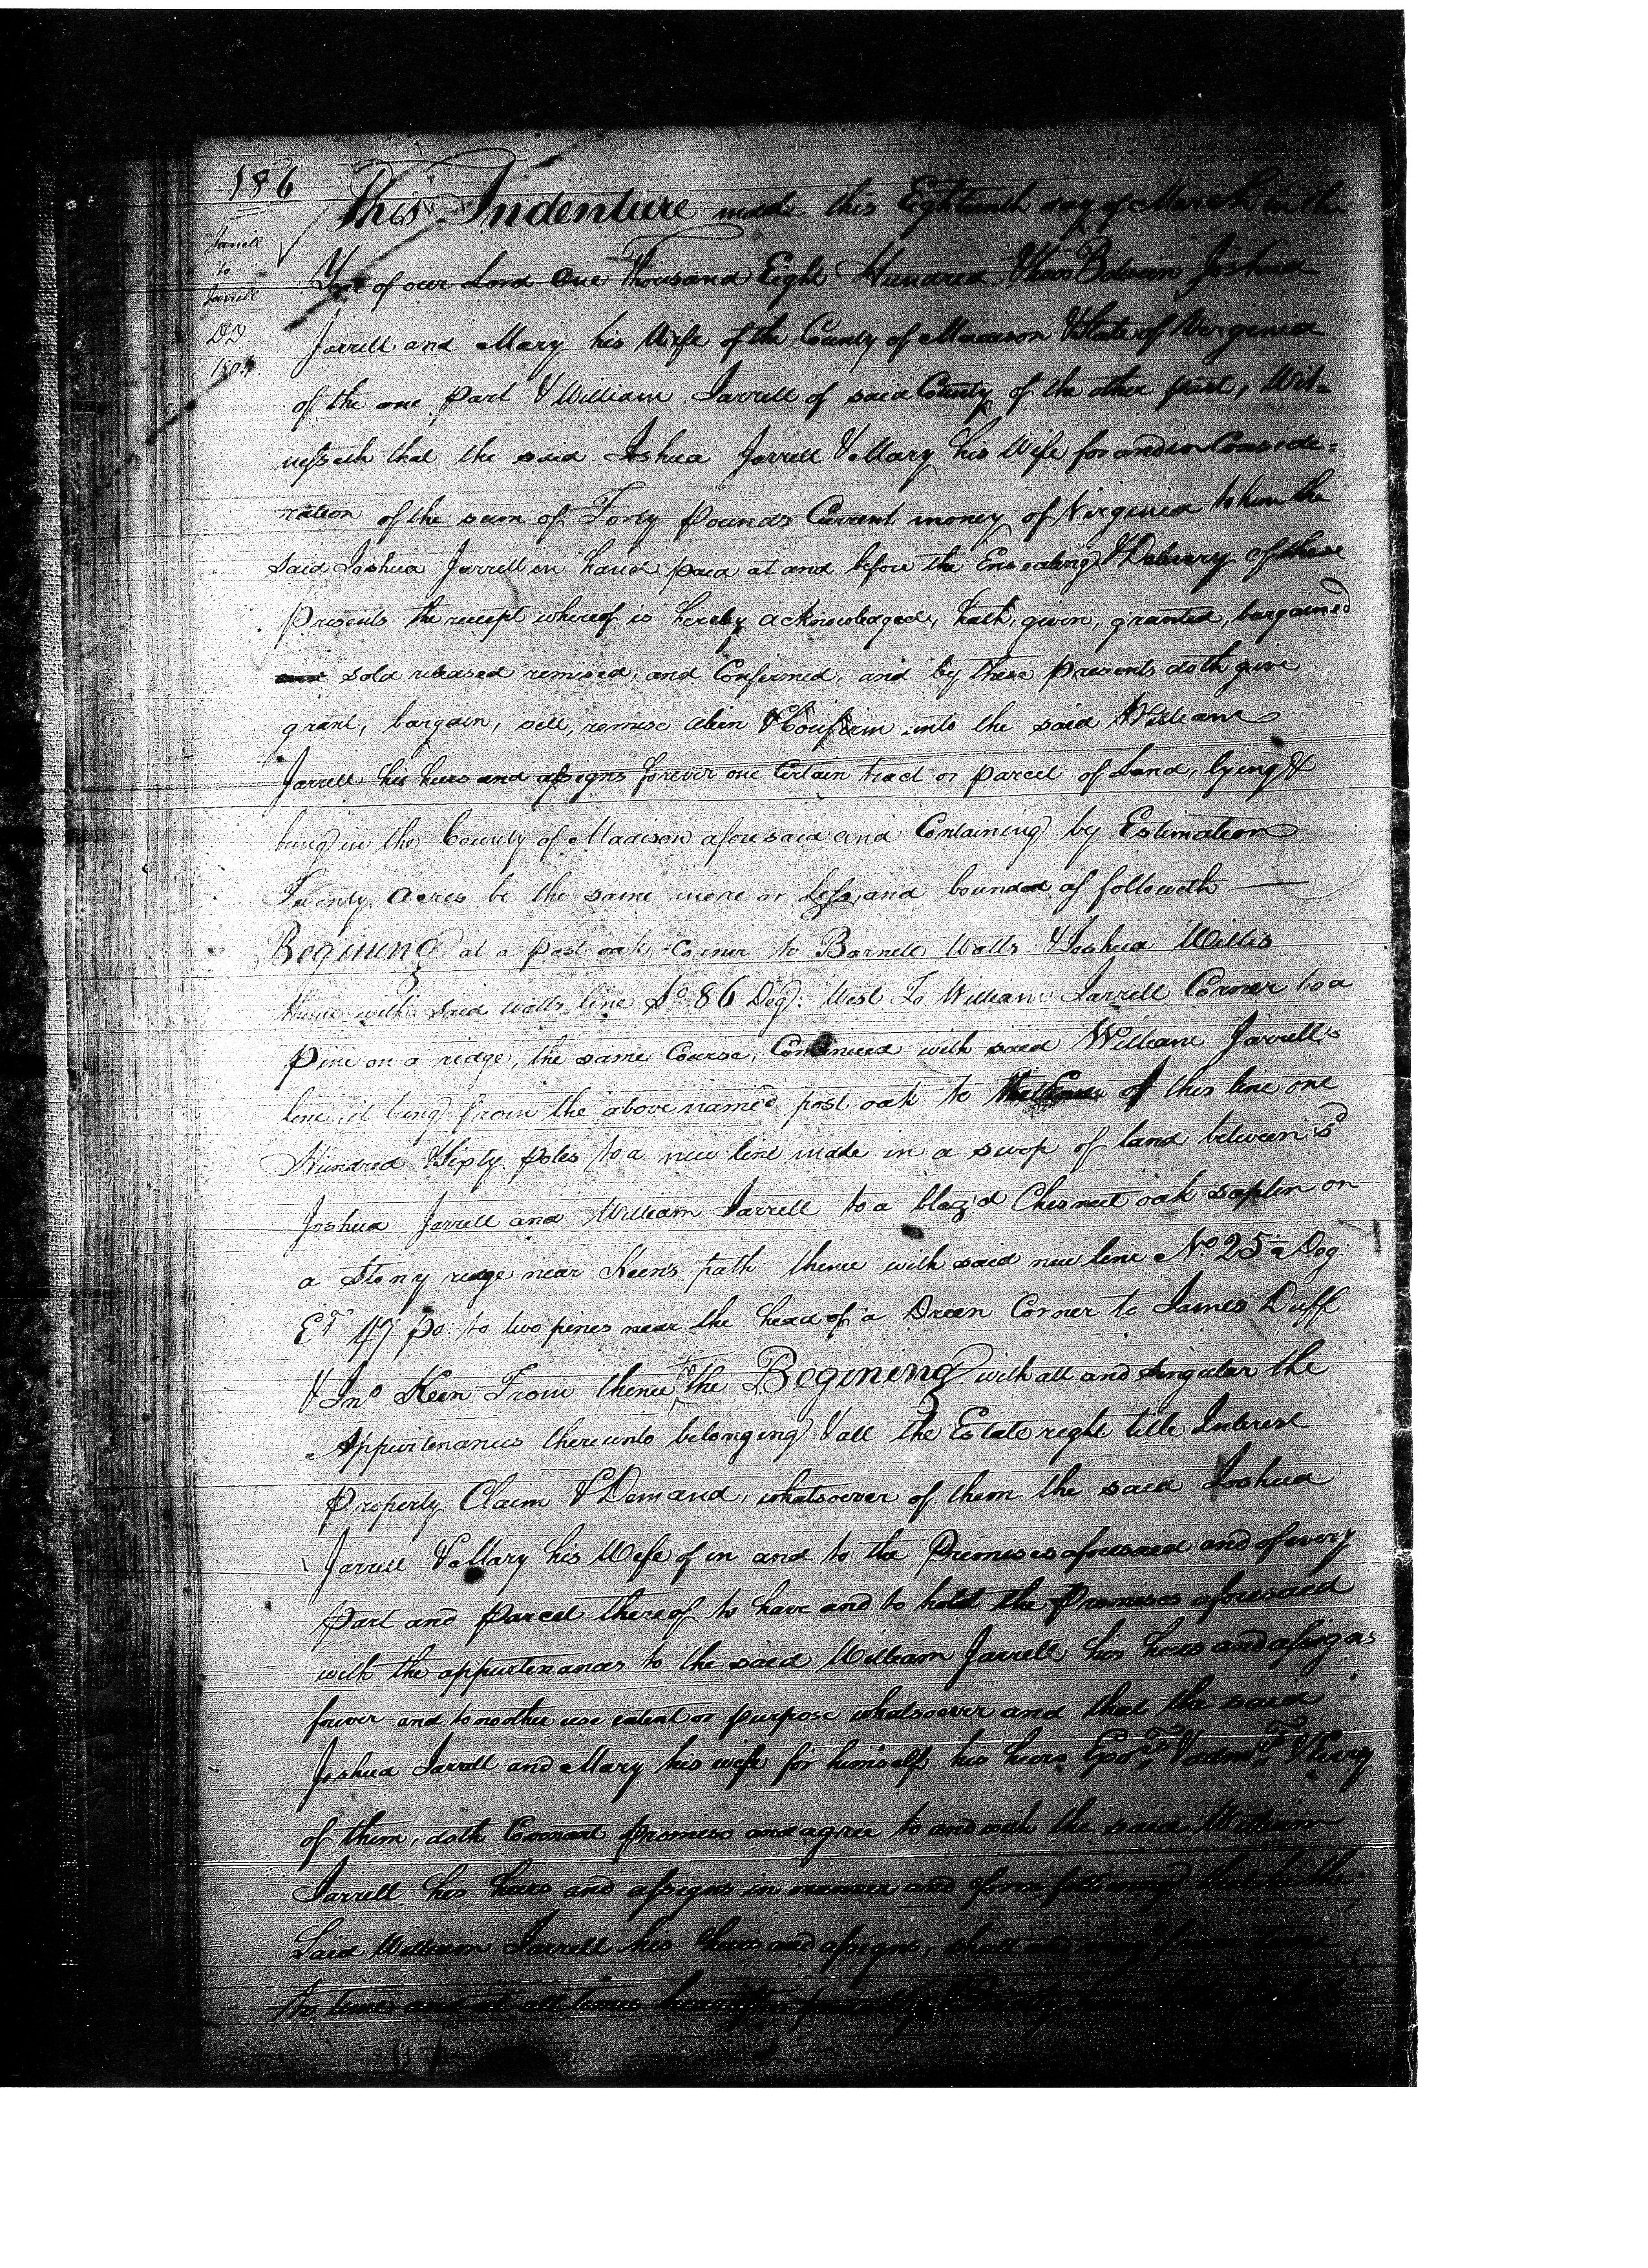 186
Jarrell
to
Jarrell
DD
This Indenture made this Eighteenth day of March in the
Year of our Lord One Thousand Eight Hundred & two Between Joshua
Jarrell and Mary his Wife of the County of Madison & State of Virginia
of the one part & William Jarrell of said County of the other part, Wit=
nesseth that the said Joshua Jarrell & Mary his Wife for and in Conside=
ration of the sum of Forty pounds Current money of Virginia to him the
Said Joshua Jarrell in hand paid at and before the Ensealing & Delivery of these
Presents the receipt whereof is hereby acknowledged, hath, given, granted, bargained
sold released remised, and Confirmed, and by these presents doth give
grant, bargain, sell, remise alien & Confirm unto the said William
Jarrell his heirs and assigns forever one Certain tract or parcel of Land, lying &
being in the County of Madison aforesaid and Containing by Estimation
Twenty Acres be the same more or less, and bounded as followeth
Begining at a post oak, Corner to Barnell Watts & Joshua Willis
thence with said Watts line So 86 Deg: West To William Jarrell Corner to a
pine on a ridge, the same Course, Continued with said William Jarrell's
line, it being from the above named post oak to of this line one
Hundred & Sixty poles to a new line made in a swop of land between sd
Joshua Jarrell and William Jarrell to a blaz'd Chesnut oak saplin on
a Stony ridge near Keen's path thence with said new line No 25 Deg:
Et 47 po: to two pines near the head of a Dreen Corner to James Duff
& Jno Keen From thence to the Begining with all and Singular the
Appurtenances thereunto belonging & all the Estate right title Interest
Property Claim & Demand, whatsoever of them the said Joshua
Jarrell & Mary his Wife of in and to the Premises aforesaid and of every
part and Parcel thereof to have and to hold the Premises aforesaid
with the appurtenances to the said William Jarrell his heirs and assigns
forever and to no other use intent or purpose whatsoever and that the said
Joshua Jarrell and Mary his wife for himself his heirs & every
of them, doth Covenant promise and agree to and with the said William
Jarrell his heirs and assigns in manner and form following that he the
Said William Jarrell his heirs and assigns, shall and may from time
to time and at all times hereafter